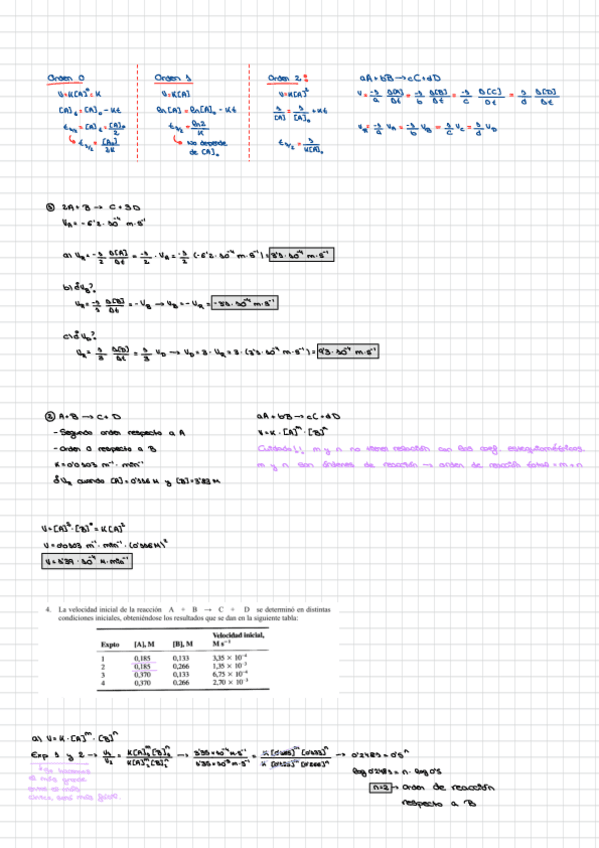 Orden 0
V=K[A]⁰=K
[A]t=[A]₀-Kt
t₁/₂→[A]t=[A]₀/2
↳t₁/₂=[A]₀/2K
Orden 1
V=K[A]
ln[A]t=ln[A]₀-Kt
t₁/₂=ln2/K
↳No depende
de [A]₀
Orden 2:
V=K[A]²
1/[A]=1/[A]₀+Kt
t₁/₂=1/K[A]₀
aA+bB→cC+dD
V=-1/a Δ[A]/Δt=-1/b Δ[B]/Δt=-1/c Δ[C]/Δt=1/d Δ[D]/Δt
VR=-1/a VA=-1/b VB=1/c VC=1/d VD
① 2A+B→C+3D
VA=-6'2·10⁻⁴ M·s⁻¹
a) VR=-1/2 Δ[A]/Δt=-1/2·VA=-1/2·(-6'2·10⁻⁴ M·s⁻¹)=3'1·10⁻⁴ M·s⁻¹
b) ¿VB?
VR=-1/1 Δ[B]/Δt=-VB→VB=-VR=-3'1·10⁻⁴ M·s⁻¹
c) ¿VD?
VR=1/3 Δ[D]/Δt=1/3 VD→VD=3·VR=3·(3'1·10⁻⁴ M·s⁻¹)=9'3·10⁻⁴ M·s⁻¹
② A+B→C+D
- Segundo orden respecto a A
- Orden 0 respecto a B
K=0'0103 M⁻¹·min⁻¹
¿VR cuando [A]=0'116 M y [B]=3'83 M
aA+bB→cC+dD
V=K·[A]ᵐ·[B]ⁿ
Cuidado!! m y n no tienen relación con los coef. estequiométricos.
m y n son órdenes de reacción→orden de reacción total=m+n
V=[A]²·[B]⁰=K[A]²
V=0'0103 M⁻¹·min⁻¹·(0'116M)²
V=1'39·10⁻⁴ M·min⁻¹
4. La velocidad inicial de la reacción A + B → C + D se determinó en distintas
condiciones iniciales, obteniéndose los resultados que se dan en la siguiente tabla:
Velocidad inicial,
Expto [A], M [B], M M s⁻¹
1 0,185 0,133 3,35 × 10⁻⁴
2 0,185 0,266 1,35 × 10⁻³
3 0,370 0,133 6,75 × 10⁻⁴
4 0,370 0,266 2,70 × 10⁻³
a) V=K·[A]ᵐ·[B]ⁿ
Exp 1 y 2→V1/V2=K[A]ᵐ[B]ⁿ/K[A]ᵐ[B]ⁿ→3'35·10⁻⁴ M·s⁻¹/1'35·10⁻³ M·s⁻¹=K·(0'185)ᵐ(0'133)ⁿ/K·(0'185)ᵐ(0'266)ⁿ→0'2481=0'5ⁿ
log 0'2481=n·log 0'5
n=2→orden de reacción
respecto a B